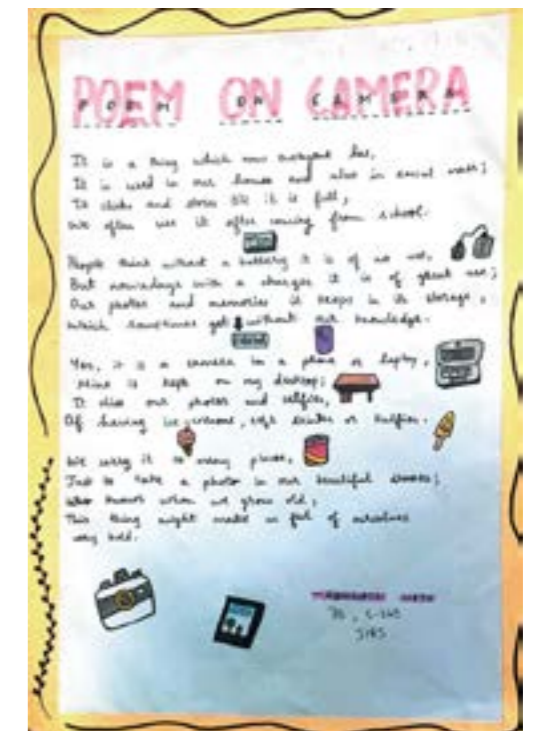 POEM ON CAMERA
POEM ON CAMERA
It is a thing which now everyone has,
It is used in our house and also in social media;
It clicks and stores till it is full,
We often use it after coming from school.
People think without a battery it is of no use,
But nowadays with a charger it is of great use;
Our photos and memories it keeps in its storage,
Which sometimes get without our knowledge.
Yes, it is a camera in a phone or laptop,
Mine is kept on my desktop;
It our photos and selfies,
Of having ice creams, soft drinks or kulfies.
We carry it to many places,
Just to take a photo in our beautiful
Who knows when we grow old,
This thing might make us feel of ourselves
very bold.